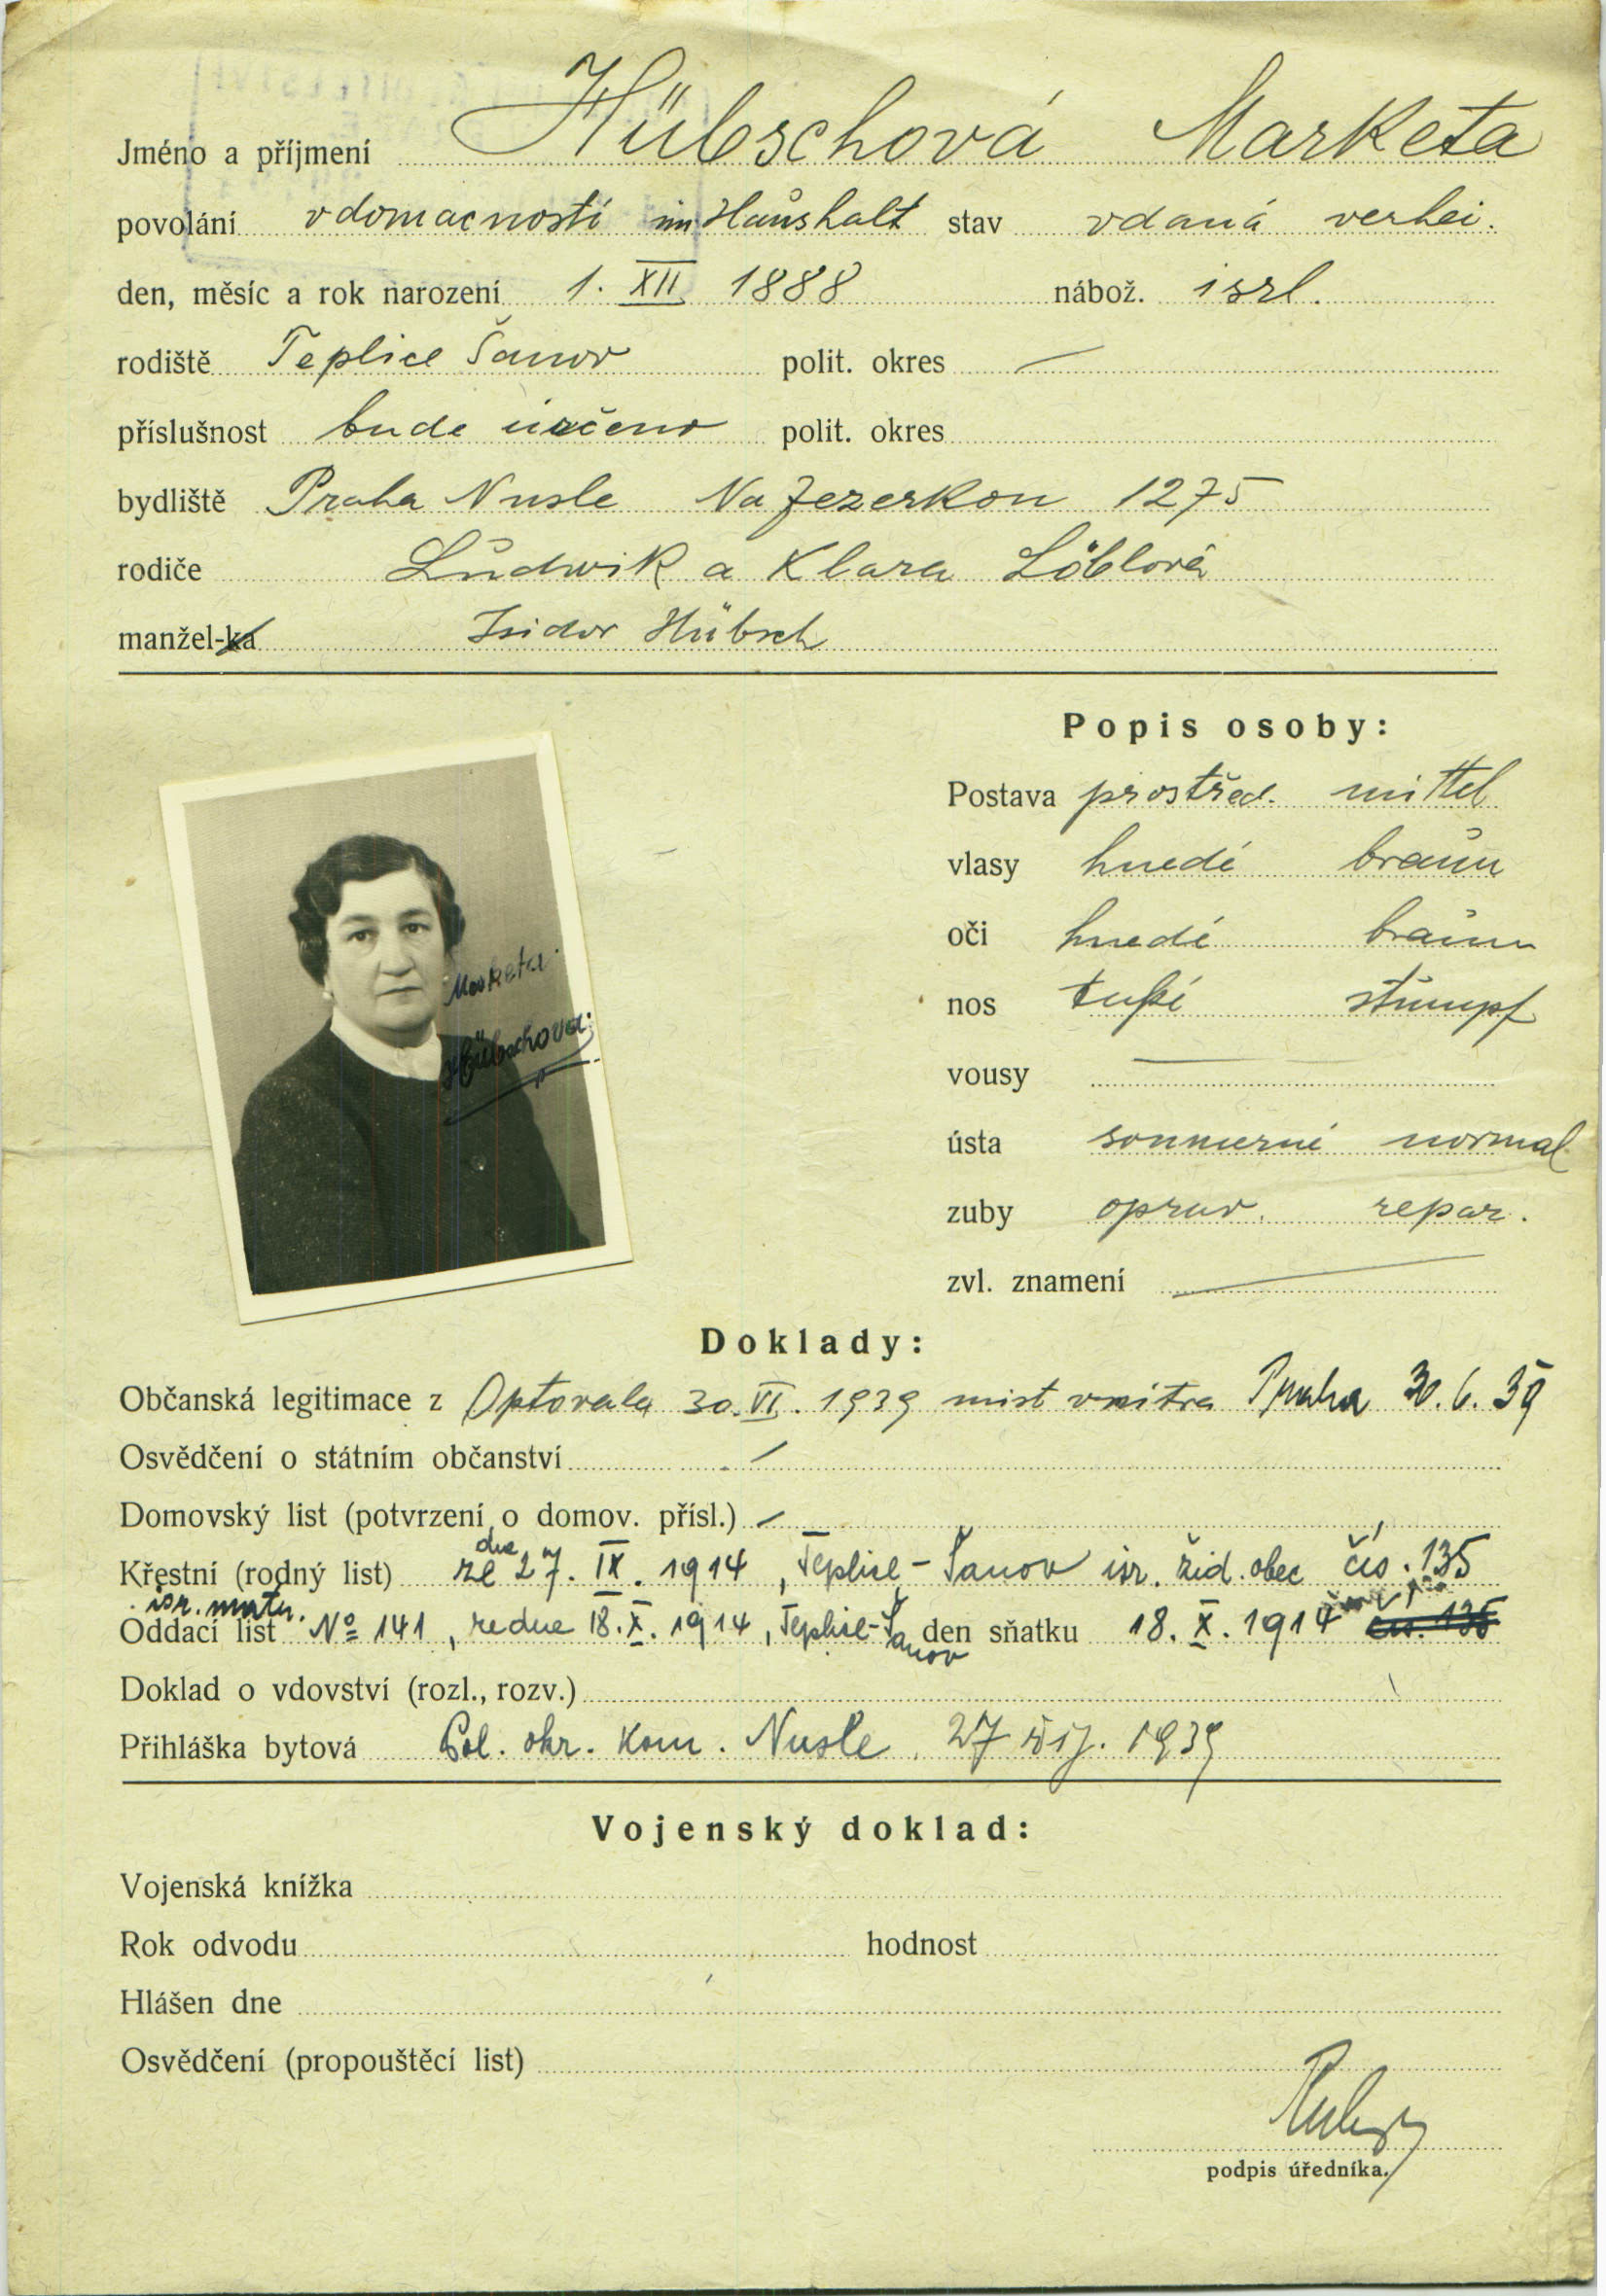 Jméno a příjmení Hübschová Marketa
povolání v domacnosti im Haushalt stav vdaná verhei.
den, měsíc a rok narození 1. XII 1888 nábož. isrl.
rodiště Teplice Šanov polit. okres —
příslušnost bude určeno polit. okres
bydliště Praha Nusle Na Jezerkou 1275
rodiče Ludwik a Klara Löblová
manžel-ka Isidor Hübsch
Popis osoby:
Postava prostřed. mittel
vlasy hnedé braun
oči hnedé braun
nos tupí stumpf
vousy —
ústa soumerné normal
zuby oprav. repar.
zvl. znamení —
Marketa
Hübschova
Doklady:
Občanská legitimace z Optovala 30. VI. 1939 mist vnitra Praha 30. 6. 39
Osvědčení o státním občanství —
Domovský list (potvrzení o domov. přísl.) —
Křestní (rodný list) ze dne 27. IX. 1914, Teplice-Šanov isr. žid. obec čís. 135
isr. matr.
Oddací list No 141, ze dne 18. X. 1914, Teplice-Šanov den sňatku 18. X. 1914 čís. 135
Doklad o vdovství (rozl., rozv.)
Přihláška bytová Pol. okr. kom. Nusle 27 říj. 1939
Vojenský doklad:
Vojenská knížka
Rok odvodu hodnost
Hlášen dne
Osvědčení (propouštěcí list)
podpis úředníka.